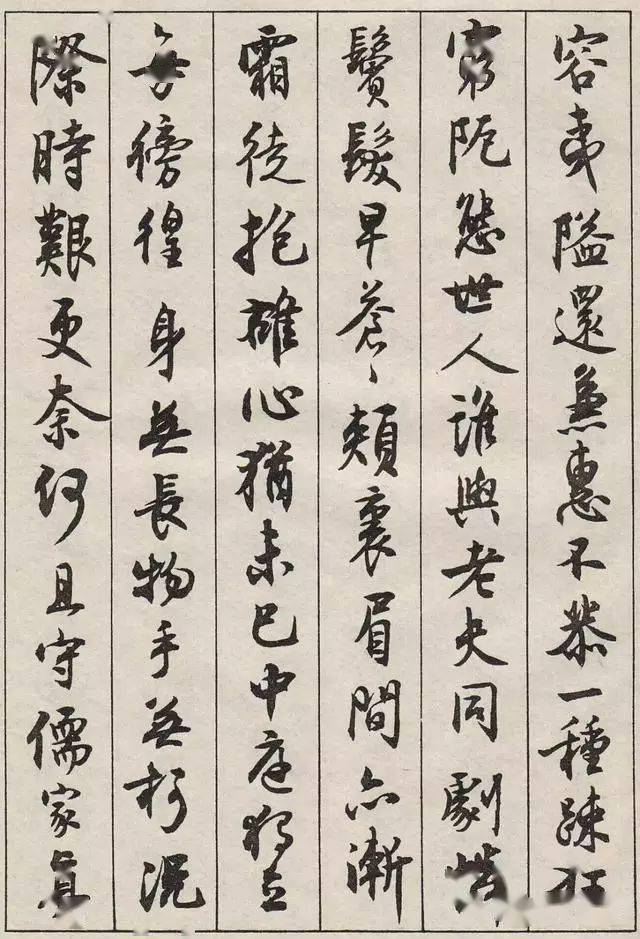 容夷隘還兼惠不恭一種疎狂
窮阨態世人誰與老夫同劇
鬢髮早蒼々頰裏眉間亦漸
霜徒抱雄心猶未已中庭獨立
每徬徨身無長物手無柯況
際時艱更奈何且守儒家真